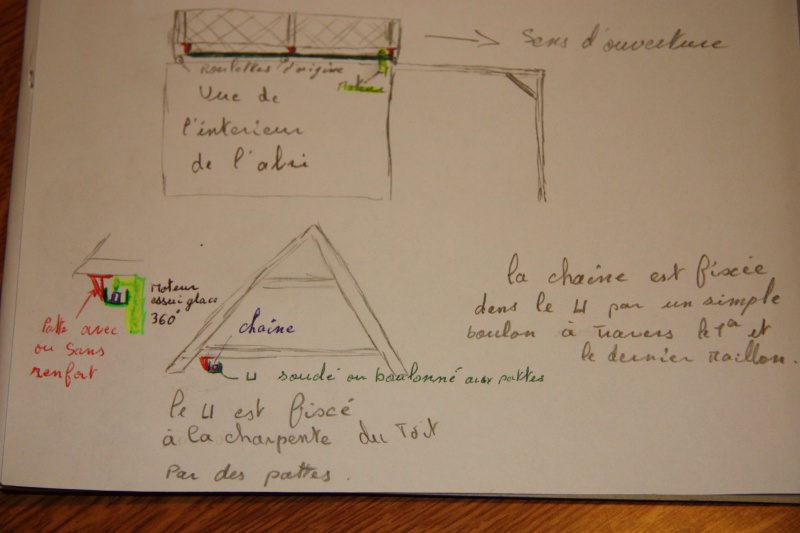 Sens d'ouverture
roulettes d'origine
Moteur
Vue de
l'interieur
de l'abri
Moteur
essui glace
360°
Patte avec
ou Sans
renfort
chaîne
U soudé ou boulonné aux pattes
le U est fiscé
à la charpente du Toit
Par des pattes.
la chaîne est fiscée
dans le U par un simple
boulon à Travers le 1er et
le dernier maillon.